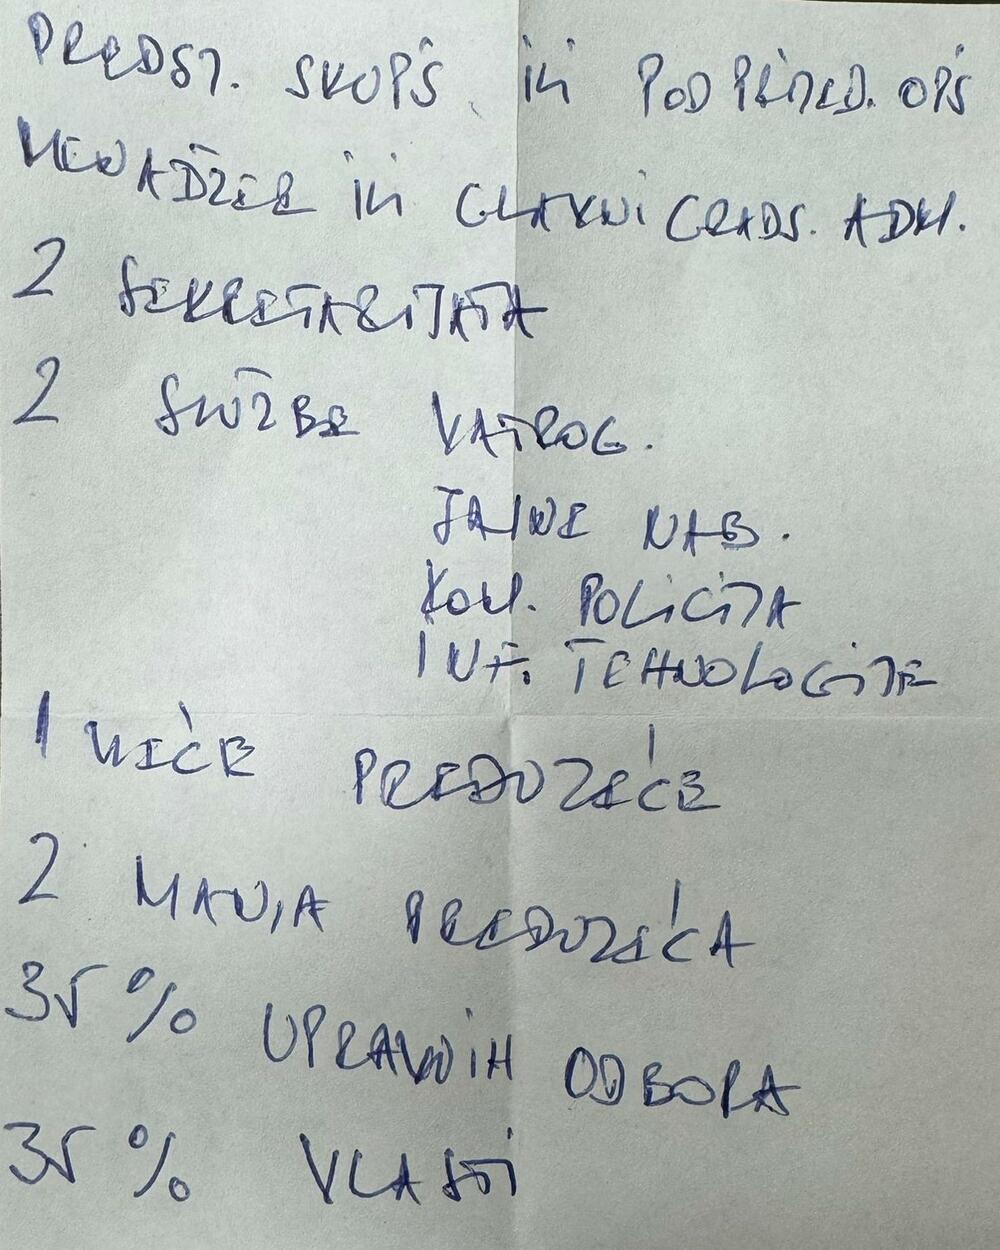 PREDST. SKUPŠ. ILI PODPREDSED. OPŠ
MENADŽER ILI GLAVNI GRADS. ADM.
2 SEKRETARIJATA
2 SLUŽBE VATROG.
JAVNE NAB.
KOM. POLICIJA
INF. TEHNOLOGIJE
1 VEĆE PREDUZEĆE
2 MANJA PREDUZEĆA
35% UPRAVNIH ODBORA
35% VLASTI